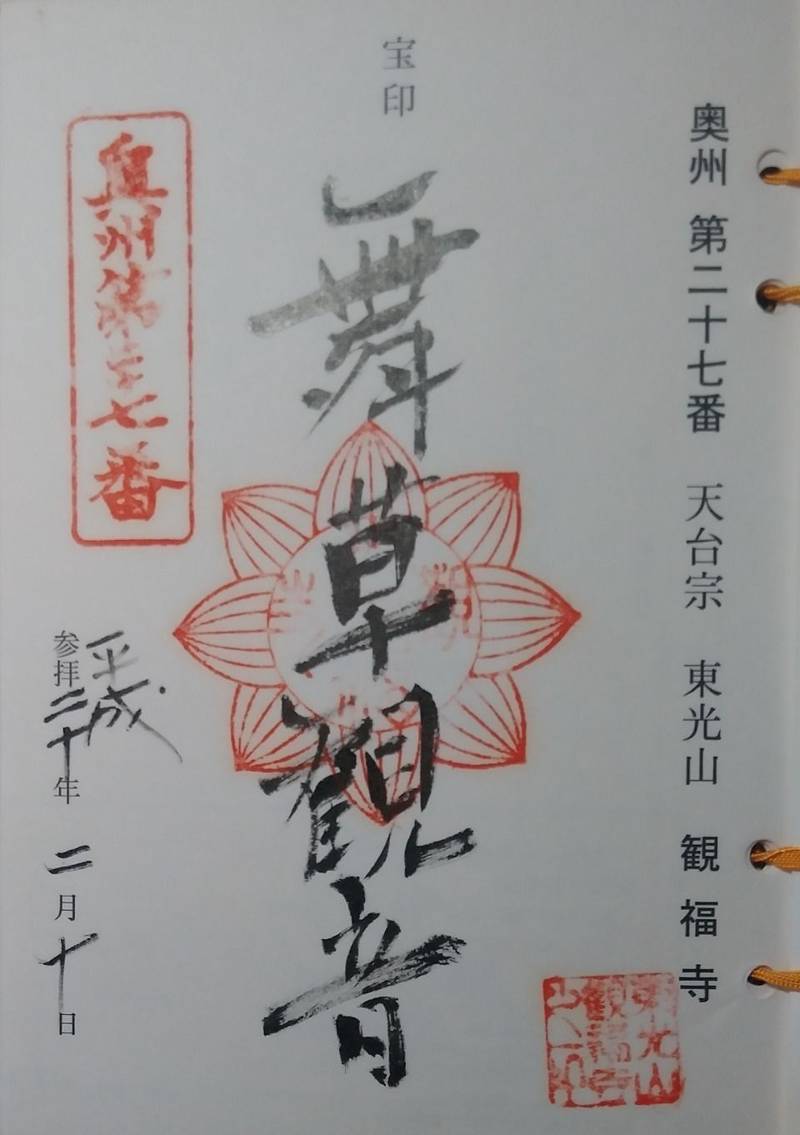 奥州 第二十七番 天台宗 東光山 観福寺
東光山
観福寺
宝印
舞草観音
奥州第二十七番
平成
参拝二十年 二月十日